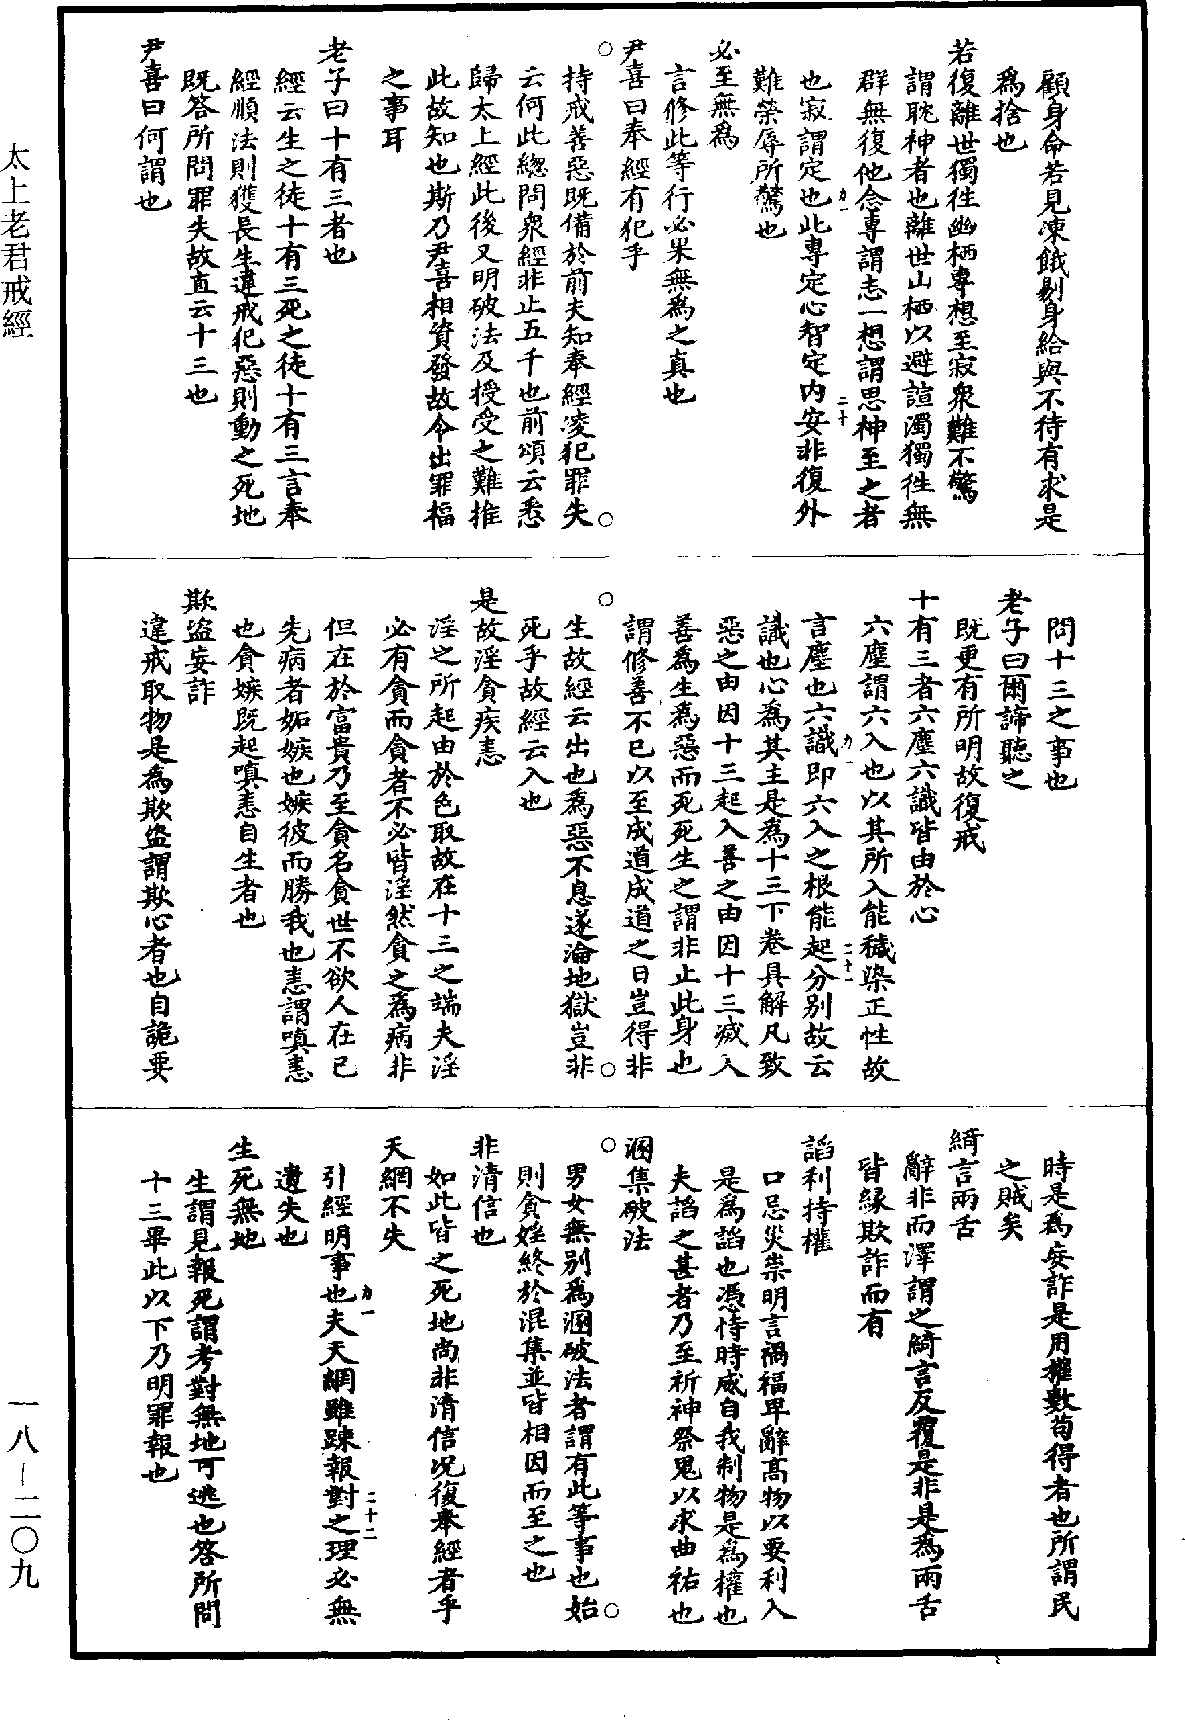 太上老君戒經
顧身命若見凍餓剔身給與不待有求是
爲捨也
若復離世獨徃幽栖專想至寂衆難不驚
謂耽神者也離世山栖以避諠濁獨徃無
群無復他念專謂志一想謂思神至之者
也寂謂定也此專定心智定內安非復外
難榮辱所驚也
必至無爲
言修此等行必果無爲之真也
尹喜曰奉經有犯乎
持戒善惡既備於前夫知奉經凌犯罪失
云何此緫問衆經非止五千也前頌云悉
歸太上經此後又明破法及授受之難推
此故知也斯乃尹喜相資發故令出罪福
之事耳
老子曰十有三者也
經云生之徒十有三死之徒十有三言奉
經順法則獲長生違戒犯惡則動之死地
既答所問罪失故直云十三也
尹喜曰何謂也
力一
二十
問十三之事也
老子曰爾諦聽之
既更有所明故復戒
十有三者六塵六識皆由於心
六塵謂六入也以其所入能穢染正性故
言塵也六識即六入之根能起分別故云
識也心爲其主是爲十三下卷具解凡致
惡之由因十三起入善之由因十三滅入
善爲生爲惡而死死生之謂非止此身也
謂修善不已以至成道成道之日豈得非
生故經云出也爲惡不息遂淪地獄豈非
死乎故經云入也
是故淫貪疾恚
淫之所起由於色取故在十三之端夫淫
必有貪而貪者不必皆淫然貪之爲病非
但在於富貴乃至貪名貪世不欲人在已
先病者妬嫉也嫉彼而勝我也恚謂嗔恚
也貪嫉既起嗔恚自生者也
欺盜妄詐
違戒取物是爲欺盜謂欺心者也自詭要
力一
二十一
時是爲妄詐是用權數苟得者也所謂民
之賊矣
綺言兩舌
辭非而澤謂之綺言反覆是非是爲兩舌
皆緣欺詐而有
謟利持權
口忌災祟明言禍福卑辭髙物以要利入
是爲謟也憑恃時威自我制物是爲權也
夫謟之甚者乃至祈神祭鬼以求曲祐也
溷集破法
男女無別爲溷破法者謂有此等事也始
則貪婬終於混集並皆相因而至之也
非清信也
如此皆之死地尚非清信况復奉經者乎
天網不失
引經明事也夫天網雖踈報對之理必無
遺失也
生死無地
生謂見報死謂考對無地可逃也答所問
十三畢此以下乃明罪報也
力一
二十二
一八－二〇九